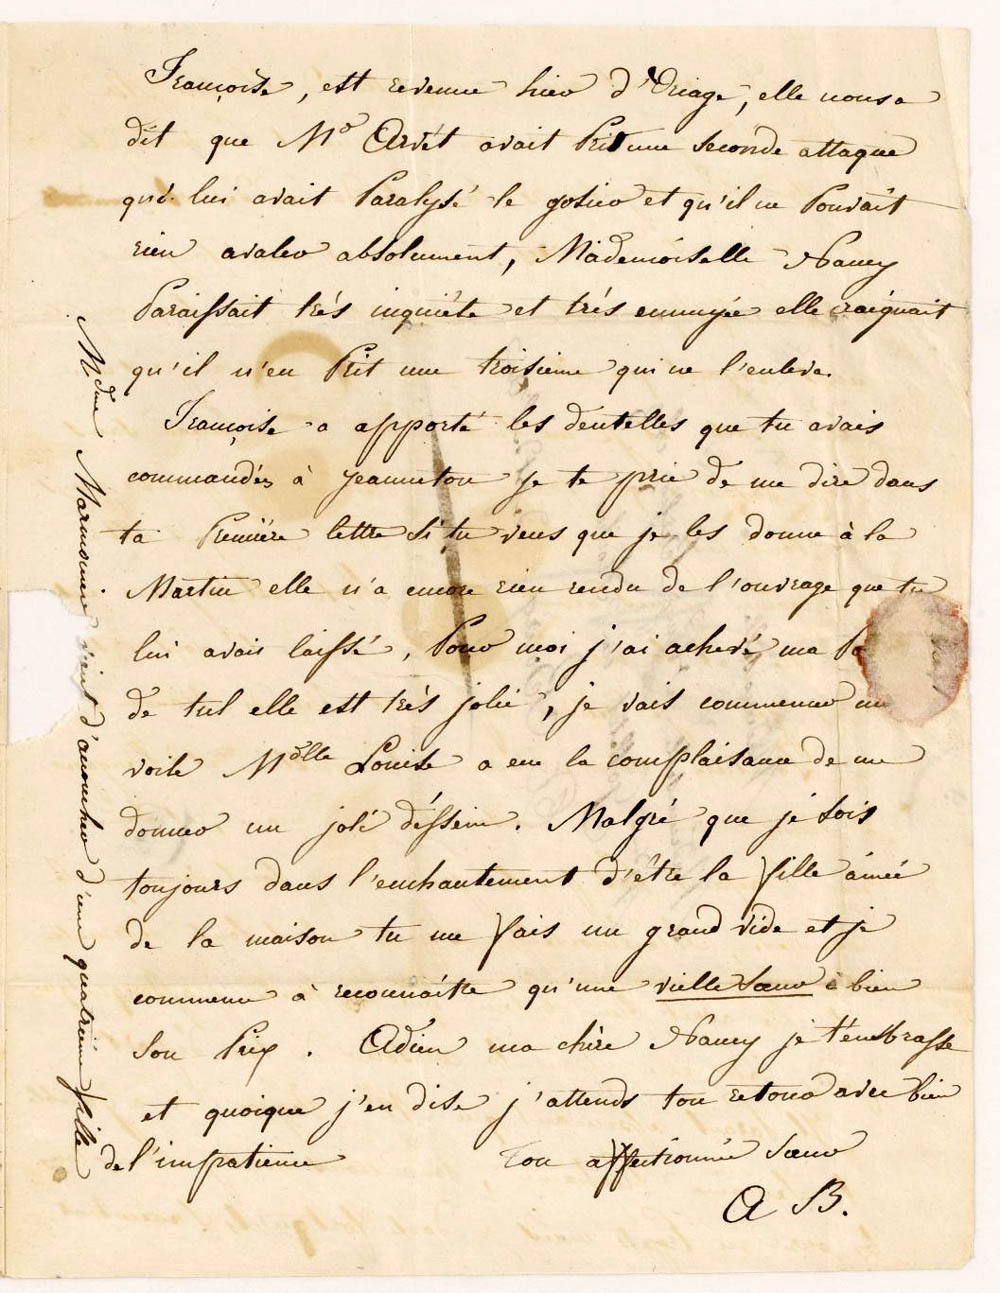 Françoise, est revenue hier d'Uriage, elle nous a
dit que Mr Arvet avait Prit une seconde attaque
qui lui avait Paralysé le gosier et qu'il ne Pouvait
rien avaler absolument, Mademoiselle Nancy
Paraissait très inquiète et très ennuyée elle craignait
qu'il n'en Prit une troisieme qui ne l'enleva.
Françoise a apporté les dentelles que tu avais
commandés à Jeanneton je te prie de me dire dans
ta Première lettre si tu veus que je les donne à la
Martin elle n'a encore rien rendu de l'ouvrage que tu
lui avais laissé, Pour moi j'ai achevé ma
de tul elle est très jolie, je vais commencer un
voile Mdlle Louise a eue la complaisance de me
donner un joli déssein. Malgré que je sois
toujours dans l'enchantement d'être la fille ainée
de la maison tu me fais un grand vide et je
commence à reconnaitre qu'une vielle sœur à bien
son Prix. Adieu ma chère Nancy je t'embrasse
et quoique j'en dise j'attends ton retour avec bien
de l'impatience Ton affectionnée sœur
A B.
Mdme Marmonier vient d'accoucher d'une quatrième fille